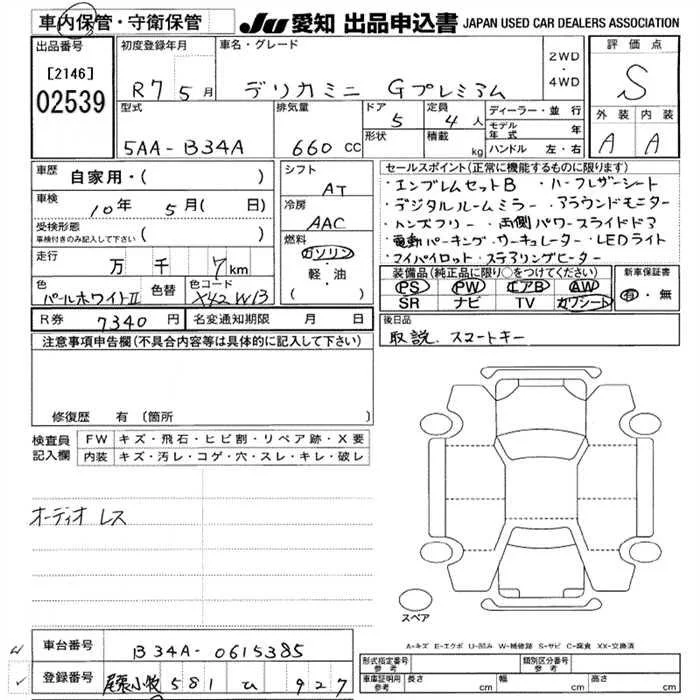 車内保管・守衛保管
JU愛知 出品申込書 JAPAN USED CAR DEALERS ASSOCIATION
出品番号
[2146]
02539
初度登録年月
R7 5月
車名・グレード
デリカミニ Gプレミアム
2WD
・
4WD
評価点
S
外装 内装
A A
型式
5AA-B34A
排気量
660 CC
ドア
5
形状
定員
4人
積載
kg
ディーラー・並行
モデル年式 年
ハンドル 左・右
車歴
自家用・( )
車検
10年 5月( 日)
受検形態
車検付きのみ記入して下さい ( )
走行
万 千 7km
色
パールホワイトII
色替
色コード
X42W13
シフト
AT
冷房
AAC
燃料
ガソリン
・
軽・油
( )
セールスポイント(正常に機能するものに限ります)
・エンブレムセットB ・ハーフレザーシート
・デジタルルームミラー ・アラウンドモニター
・ハンズフリー ・両側パワースライドドア
・電動パーキング ・サーキュレーター ・LEDライト
・マイパイロット ・ステアリングヒーター
装備品(純正品に限り○をつけてください)
PS PW エアB AW
SR ナビ TV カワシート
新車保証書
有・無
R券 7340円
名変通知期限 月 日
後日品
取説、スマートキー
注意事項申告欄(不具合内容等は具体的に記入して下さい)
修復歴 有 (箇所 )
検査員記入欄
FW キズ・飛石・ヒビ割・リペア跡・X要
内装 キズ・汚レ・コゲ・穴・スレ・キレ・破レ
オーディオレス
スペア
A-キズ E-エクボ U-凹み W-補修跡 S-サビ C-腐食 XX-交換済
車台番号
B34A-0615385
登録番号
尾張小牧 581 ひ 927
形式指定番号 参考
類別区分番号 参考
車庫証明用 参考
長さ cm
幅 cm
高さ cm